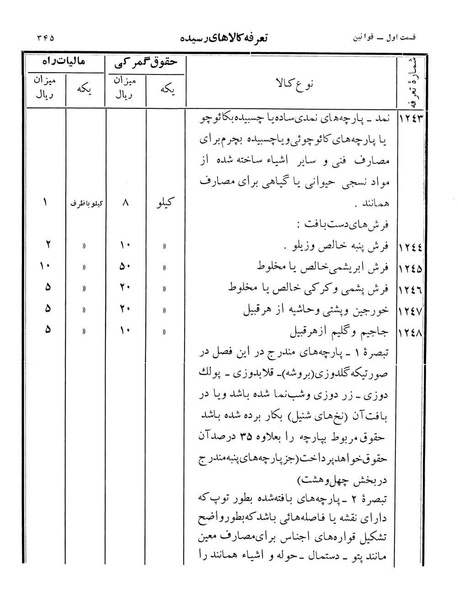 قسمت اول ــ قوانین تعرفه کالاهای رسیده ۳۴۵
شمارۀ تعرفه نوع کالا حقوق گمرکی مالیات راه
یکه میزان ریال یکه میزان ریال
۱۲۴۳ نمد ــ پارچه‌های نمدی ساده یا چسبیده بکائوچو
یا پارچه‌های کائوچوئی ویا چسبیده بچرم برای
مصارف فنی و سایر اشیاء ساخته شده از
مواد نسجی حیوانی یا گیاهی برای مصارف
همانند . کیلو ۸ کیلو با ظرف ۱
فرش‌های دست بافت :
۱۲۴۴ فرش پنبه خالص وزیلو . » ۱۰ » ۲
۱۲۴۵ فرش ابریشمی خالص یا مخلوط » ۵۰ » ۱۰
۱۲۴۶ فرش پشمی و کرکی خالص یا مخلوط » ۲۰ » ۵
۱۲۴۷ خورجین وپشتی وحاشیه از هرقبیل » ۲۰ » ۵
۱۲۴۸ جاجیم و گلیم ازهرقبیل » ۱۰ » ۵
تبصرۀ ۱ ــ پارچه‌های مندرج در این فصل در
صورتیکه گلدوزی (بروشه) ــ قلابدوزی ــ پولك
دوزی ــ زر دوزی وشب‌نما شده باشد ویا در
بافت آن (نخ‌های شنیل) بکار برده شده باشد
حقوق مربوط بپارچه را بعلاوه ۳۵ درصد آن
حقوق خواهد پرداخت (جز پارچه‌های پنبه مندرج
دربخش چهل وهشت)
تبصرۀ ۲ ــ پارچه‌های بافته شده بطور توپ که
دارای نقشه یا فاصله‌هائی باشد که بطور واضح
تشکیل قواره‌های اجناس برای مصارف معین
مانند پتو ــ دستمال ــ حوله و اشیاء همانند را